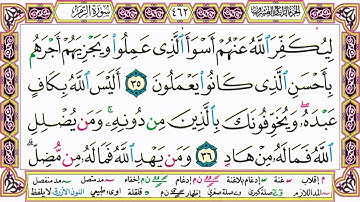 سورة الزمر ٤٦٢
لِيُكَفِّرَ ٱللَّهُ عَنْهُمْ أَسْوَأَ ٱلَّذِي عَمِلُوا۟ وَيَجْزِيَهُمْ أَجْرَهُم
بِأَحْسَنِ ٱلَّذِي كَانُوا۟ يَعْمَلُونَ ٣٥ أَلَيْسَ ٱللَّهُ بِكَافٍ
عَبْدَهُۥ وَيُخَوِّفُونَكَ بِٱلَّذِينَ مِن دُونِهِۦ وَمَن يُضْلِلِ
ٱللَّهُ فَمَا لَهُۥ مِنْ هَادٍ ٣٦ وَمَن يَهْدِ ٱللَّهُ فَمَا لَهُۥ مِن مُّضِلٍّ